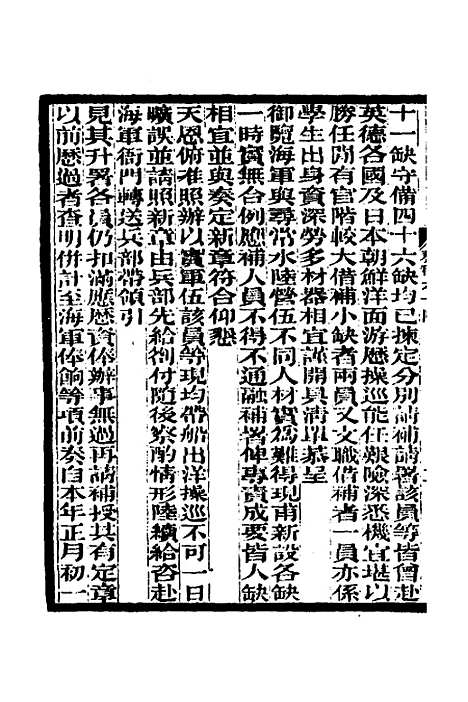 十一缺守備四十六缺均已揀定分別請補請署該員等皆曾赴
英德各國及日本朝鮮洋面游歷操巡能任艱險深悉機宜堪以
勝任間有官階較大借補小缺者兩員又文職借補者一員亦係
學生出身資深勞多材器相宜謹開具清單恭呈
御覽海軍與尋常水陸營伍不同人材實為難得現甫新設各缺
一時實無合例應補人員不得不通融補署俾專責成要皆人缺
相宜並與奏定新章符合仰懇
天恩俯准照辦以實軍伍該員等現均帶船出洋操巡不可一日
曠誤並請照新章由兵部先給劄付隨後察酌情形陸續給咨赴
海軍衙門轉送兵部帶領引
見其升署各員仍扣滿應歷資俸辦事無過再請補授具有定章
以前歷過者查明併計至海軍俸餉等項前奏自本年正月初一